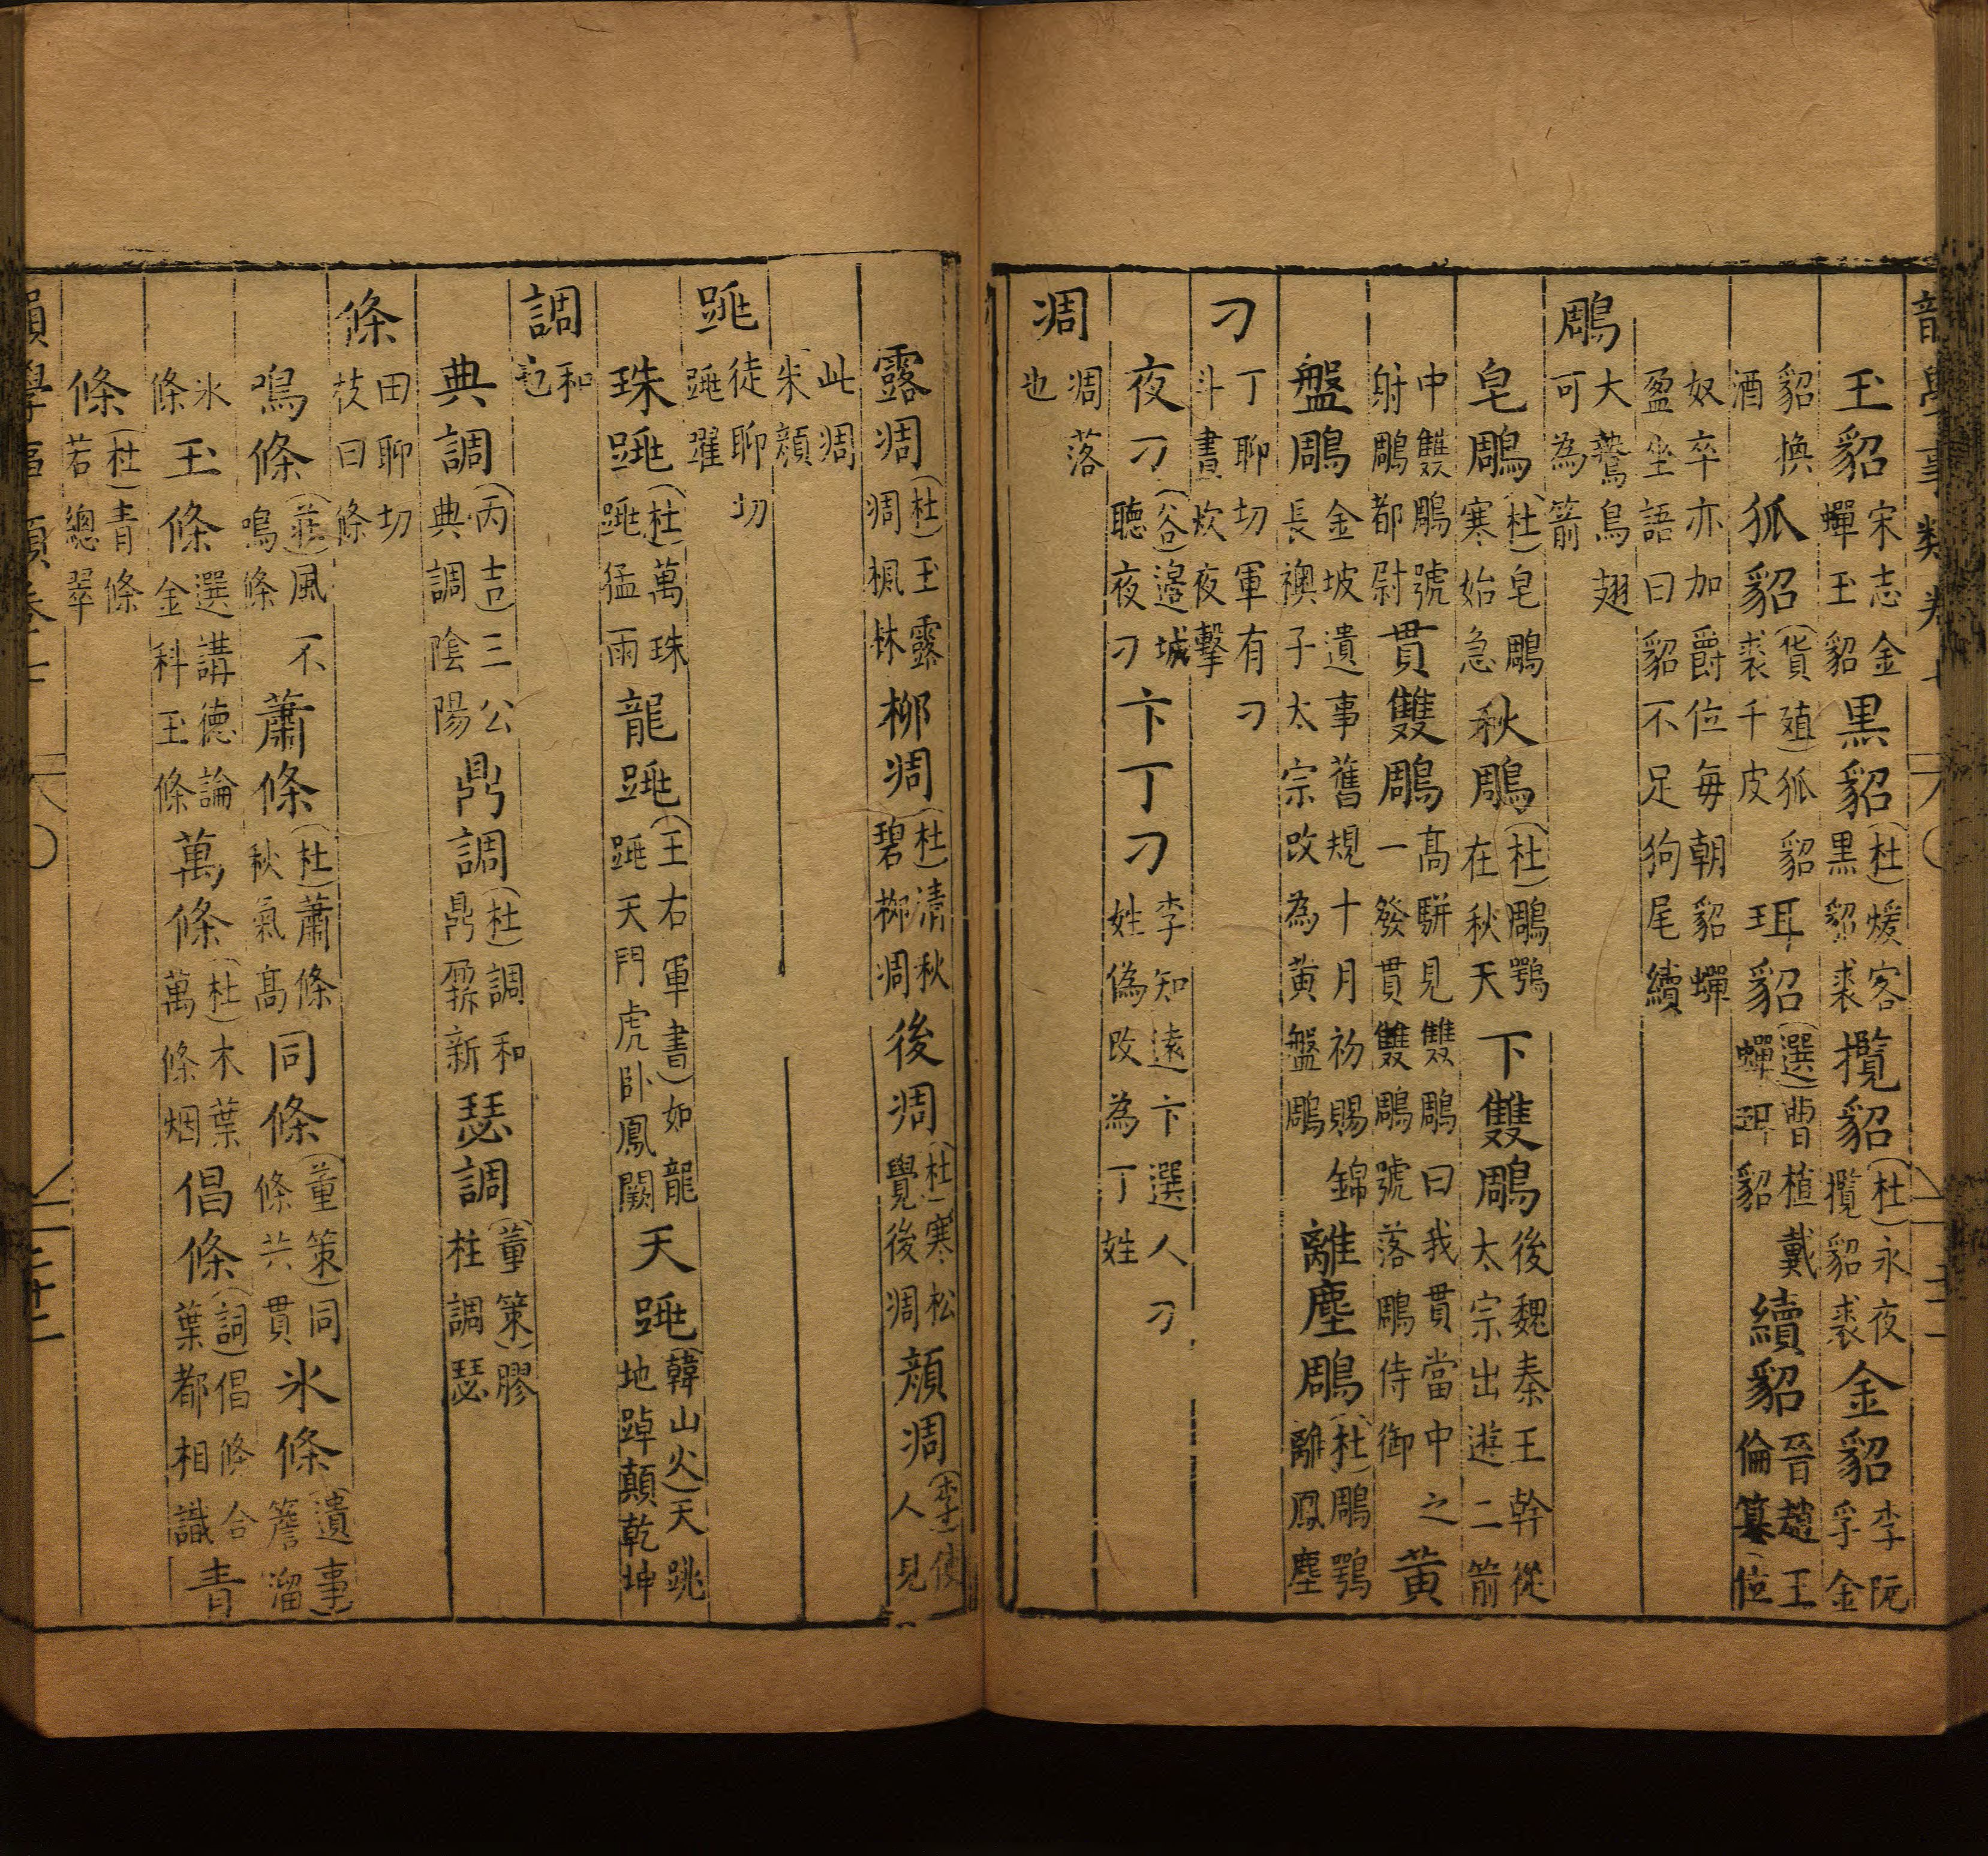 韻學事類卷七
玉貂宋志金蟬玉貂黑貂(杜)煖客黑貂裘攬貂(杜)永夜攬貂裘金貂李阮孚金
貂換酒狐貂(貨殖)狐貂裘千皮珥貂(選)曹植戴蟬珥貂續貂晉趙王倫簒位
奴卒亦加爵位每朝貂蟬盈坐語曰貂不足狗尾續
鵰大鷙鳥翅可為箭
皂鵰(杜)皂鵰寒始急秋鵰(杜)鵰鶚在秋天下雙鵰後魏秦王幹從太宗出遊二箭
中雙鵰號射鵰都尉貫雙鵰高駢見雙鵰曰我貫當中之一發貫雙鵰號落鵰侍御黃
盤鵰金坡遺事舊規十月初賜錦長襖子太宗改為黃盤鵰離塵鵰(杜)鵰鶚離風塵
刁丁聊切軍有刁斗晝炊夜擊
夜刁(谷)邉城聽夜刁卞丁刁李知遠卞選人刁姓偽改為丁姓
凋凋落也
露凋(杜)玉露凋楓林柳凋(杜)清秋碧柳凋後凋(杜)寒松覺後凋顏凋(李)使人見
此凋朱顏
跳徒聊切跳躍
珠跳(杜)萬珠跳猛雨龍跳(王右軍書)如龍跳天門虎卧鳳闕天跳(韓山火)天跳地踔顛乾坤
調和也
典調(丙吉)三公典調陰陽鼎調(杜)調和鼎鼐新瑟調(董策)膠柱調瑟
條田聊切枝曰條
鳴條(莊)風不鳴條蕭條(杜)蕭條秋氣高同條(董策)同條共貫氷條(遺事)簷溜
氷條玉條選講德論金科玉條萬條(杜)木葉萬條烟倡條(詞)倡條合葉都相識青
條(杜)青條若總翠